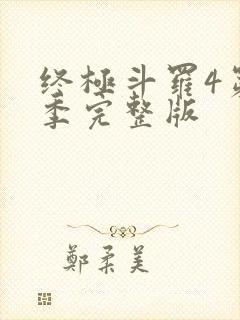 终極斗羅4第
季完整版
鄭柔美